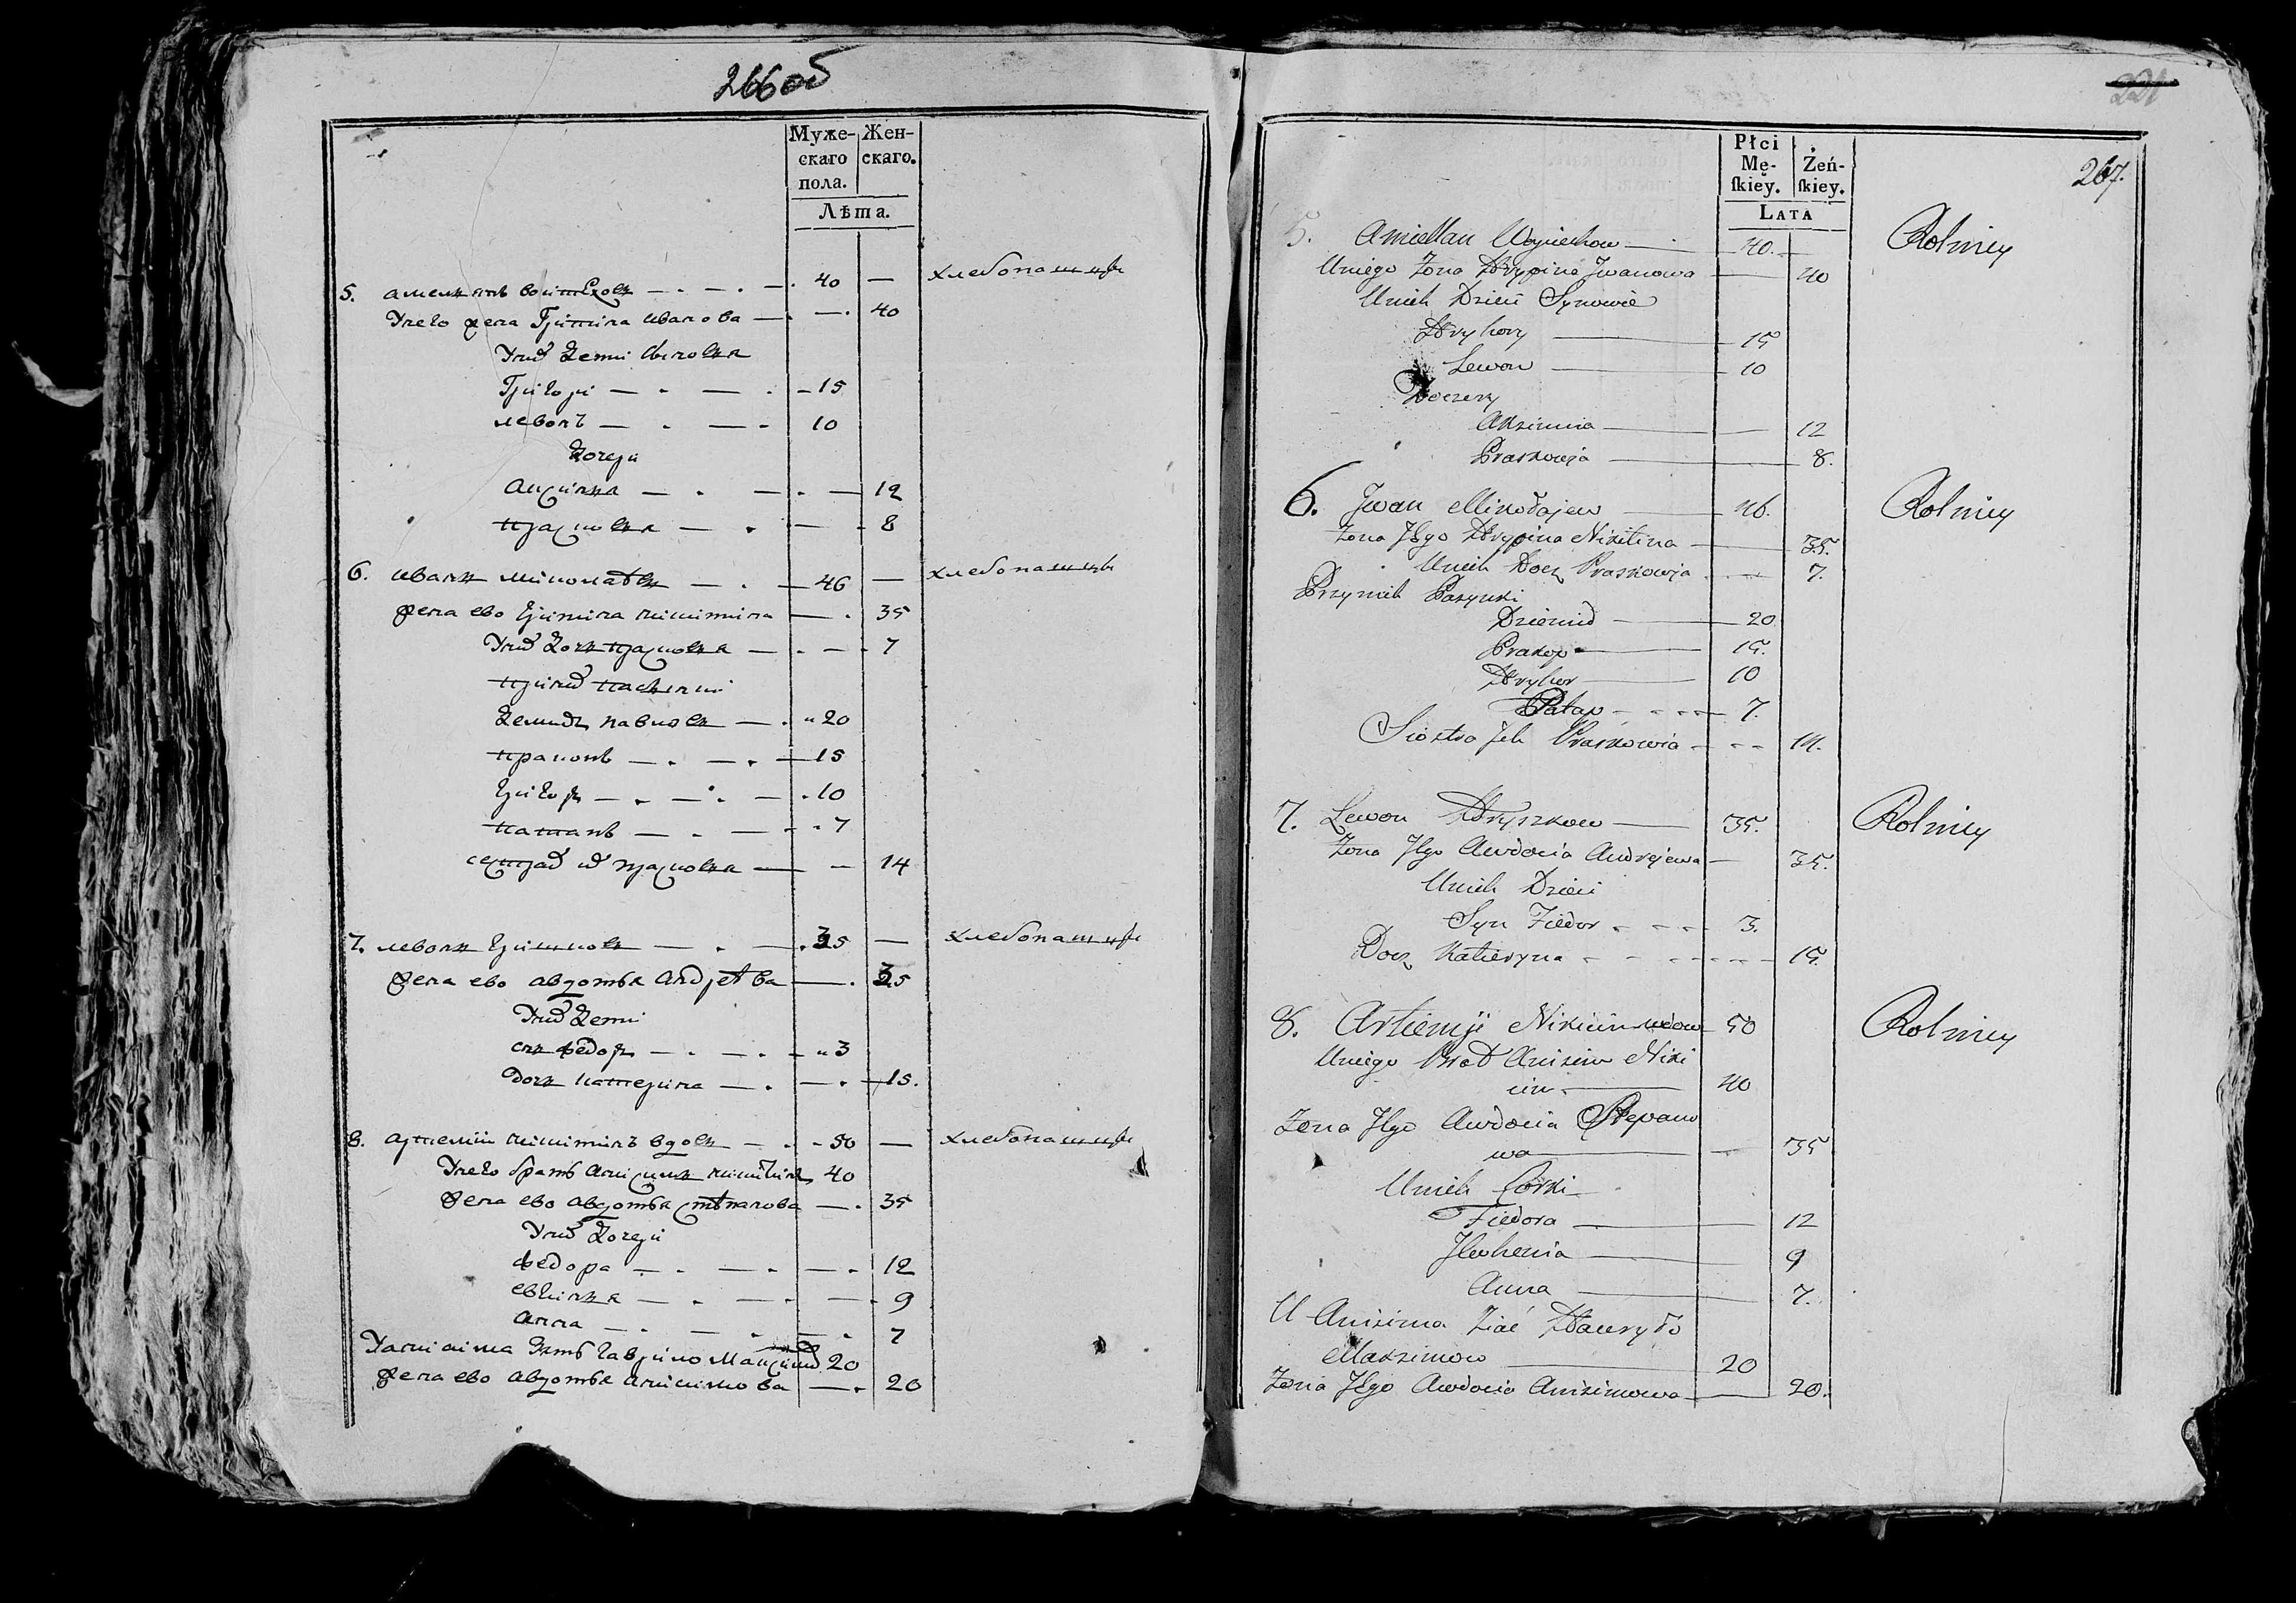 266об
Муже-
скаго
пола.
Жен-
скаго.
Лѣта.
5. амельянъ воитеховъ — 40 — хлебопашцы
Унего жена Грипина иванова — 40
Унихъ дети сыновья
Григори — 15
левонъ — 10
дочери
аксинья — 12
прасковья — 8
6. иванъ миколаевъ — 46 — хлебопашцы
жена ево грипина никитина — 35
Унихъ дочь прасковья — 7
принихъ пасынки
демидъ павловъ — 20
пракопъ — 15
григоръ — 10
патапъ — 7
сестра ихъ прасковья — 14
7. левонъ гришковъ — 35 — хлебопашцы
жена ево авдотья андреева — 35
Унихъ дети
сынъ федоръ — 3
дочь катерина — 15.
8. артемии никитинъ вдовъ — 50 — хлебопашцы
Унего братъ анисимъ никитинъ 40
жена ево авдотья степанова — 35
Унихъ дочери
федора — 12
евгинья — 9
анна — 7
Уанисима зять гаврило Максимовъ 20
жена ево авдотья анисимова — 20
221
267.
Płci
Mę-
skiey.
Żeń-
skiey.
LATA
5. Amellan Woyciechow — 40. Rolnicy
Uniego Żona Hrypina Jwanowa — 40
Unich Dzieci Synowie
Hryhory — 15
Lewon — 10
Doczery
Aksinnia — 12
Praskowja — 8.
6. Jwan Mikołajew — 46. Rolnicy
Żona Jego Hrypina Nikitina — 35.
Unich Docz Praskowja — 7.
Przynich Pasynki
Dziemid — 20
Prakop — 15.
Hryhor — 10
Patap — 7.
Siostra Jch Praskowia — 14.
7. Lewon Hryszkow — 35. Rolnicy
Żona Jego Awdocia Andrejewa — 35.
Unich Dzieci
Syn Fiedor — 3.
Docz Katieryna — 15.
8. Artiemji Nikicin wdow — 50 Rolnicy
Uniego Brat Anisim Niki
cin — 40
Żona Jego Awdocia Stepano
wa — 35
Unich Córki
Fiedora — 12
Jewhenia — 9
Anna — 7.
U Anisima Zіać Hawryło
Maksimow — 20
Żona Jego Awdocia Anisimowa — 20.